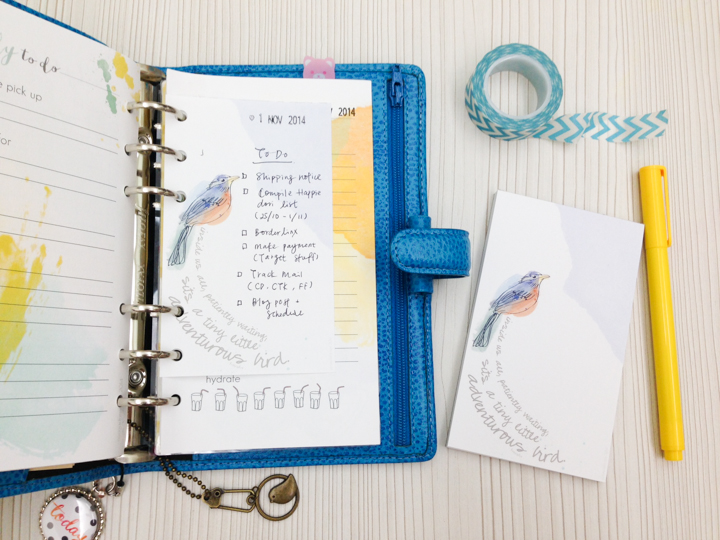 y to do
e pick up
for
01 NOV 2014
2014
To Do
Shipping notice
Compile Happie
dori list
(25/10 - 1/11)
Borderlinx
Make payment
(Target stuff)
Track Mail
(CD, CTK, FF)
Blog post +
schedule
inside us all, patiently waiting
sits a tiny little
adventurous bird
hydrate
today
inside us all, patiently waiting
sits a tiny little
adventurous bird